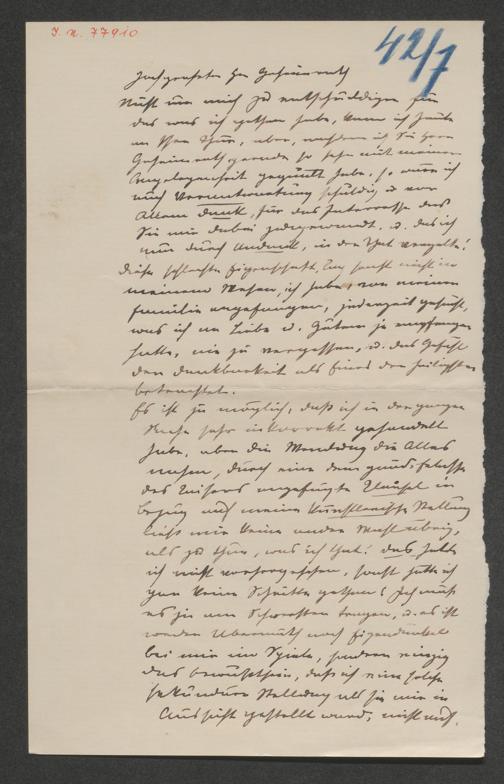 I. N. 77910
42/7
Hochgeehrter Herr Geheimrath
Nicht um mich zu entschuldigen für
das was ich gethan habe, komme ich heute
an Ihre Thür, aber, nachdem ich Sie Herr
Geheimrath gerade so sehr mit meiner
Angelegenheit gequält habe, so wäre ich
auch Verantwortung schuldig u vor
Allem Dank, für das Interesse das
Sie mir dabei zugewandt, u. das ich
nun durch Undank, in der That vergelte!
Diese schlechte Eigenschaft, lag sonst nicht in
meinem Wesen, ich habe, von meiner
Familie angefangen, jederzeit gesucht,
was ich an Liebe u. Gutem je empfangen
hatte, nie zu vergessen, u. das Gefühl
der Dankbarkeit als Eines der heiligsten
betrachtet.
Es ist ja möglich, daß ich in der ganzen
Sache sehr inkorrekt gehandelt
habe, aber die Wendung die Alles
nahm, durch eine dem
des Kaisers angefügte Clausel in
Bezug auf meine künstlerische Stellung
ließ mir keine andre Wahl übrig,
als zu thun, was ich that! das hatte
ich nicht vorhergesehen, sonst hätte ich
gar keine Schritte gethan! Ich muß
es ja am Schwersten tragen, u. es ist
weder Übermuth noch Eigendünkel
bei mir im Spiele, sondern einzig
das Bewußtsein, daß ich eine solche
sekundäre Stellung als sie mir in
Aussicht gestellt ward, nicht